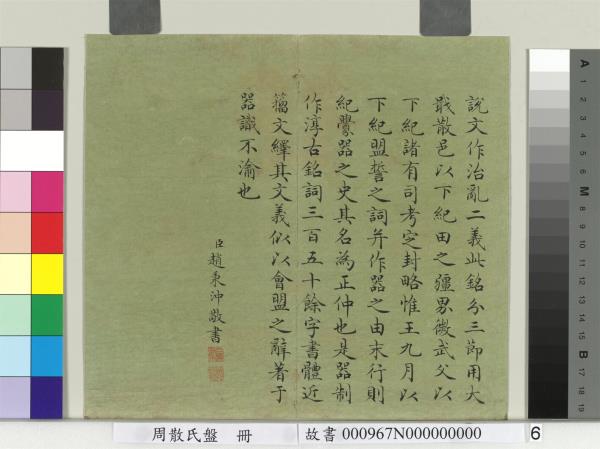 說文作治亂二義此銘分三節用大
戢散邑以下紀田之疆界微武父以
下紀諸有司考定封略惟王九月以
下紀盟誓之詞并作器之由末行則
紀爨器之史其名為正仲也是器制
作淳古銘詞三百五十餘字書體近
籀文繹其文義似以會盟之辭著于
器識不渝也
臣趙秉沖敬書
周散氏盤 冊 故書 000967N000000000 6
A 1 2 3 4 5 6 M 8 9 10 11 12 13 14 15 B 17 18 19